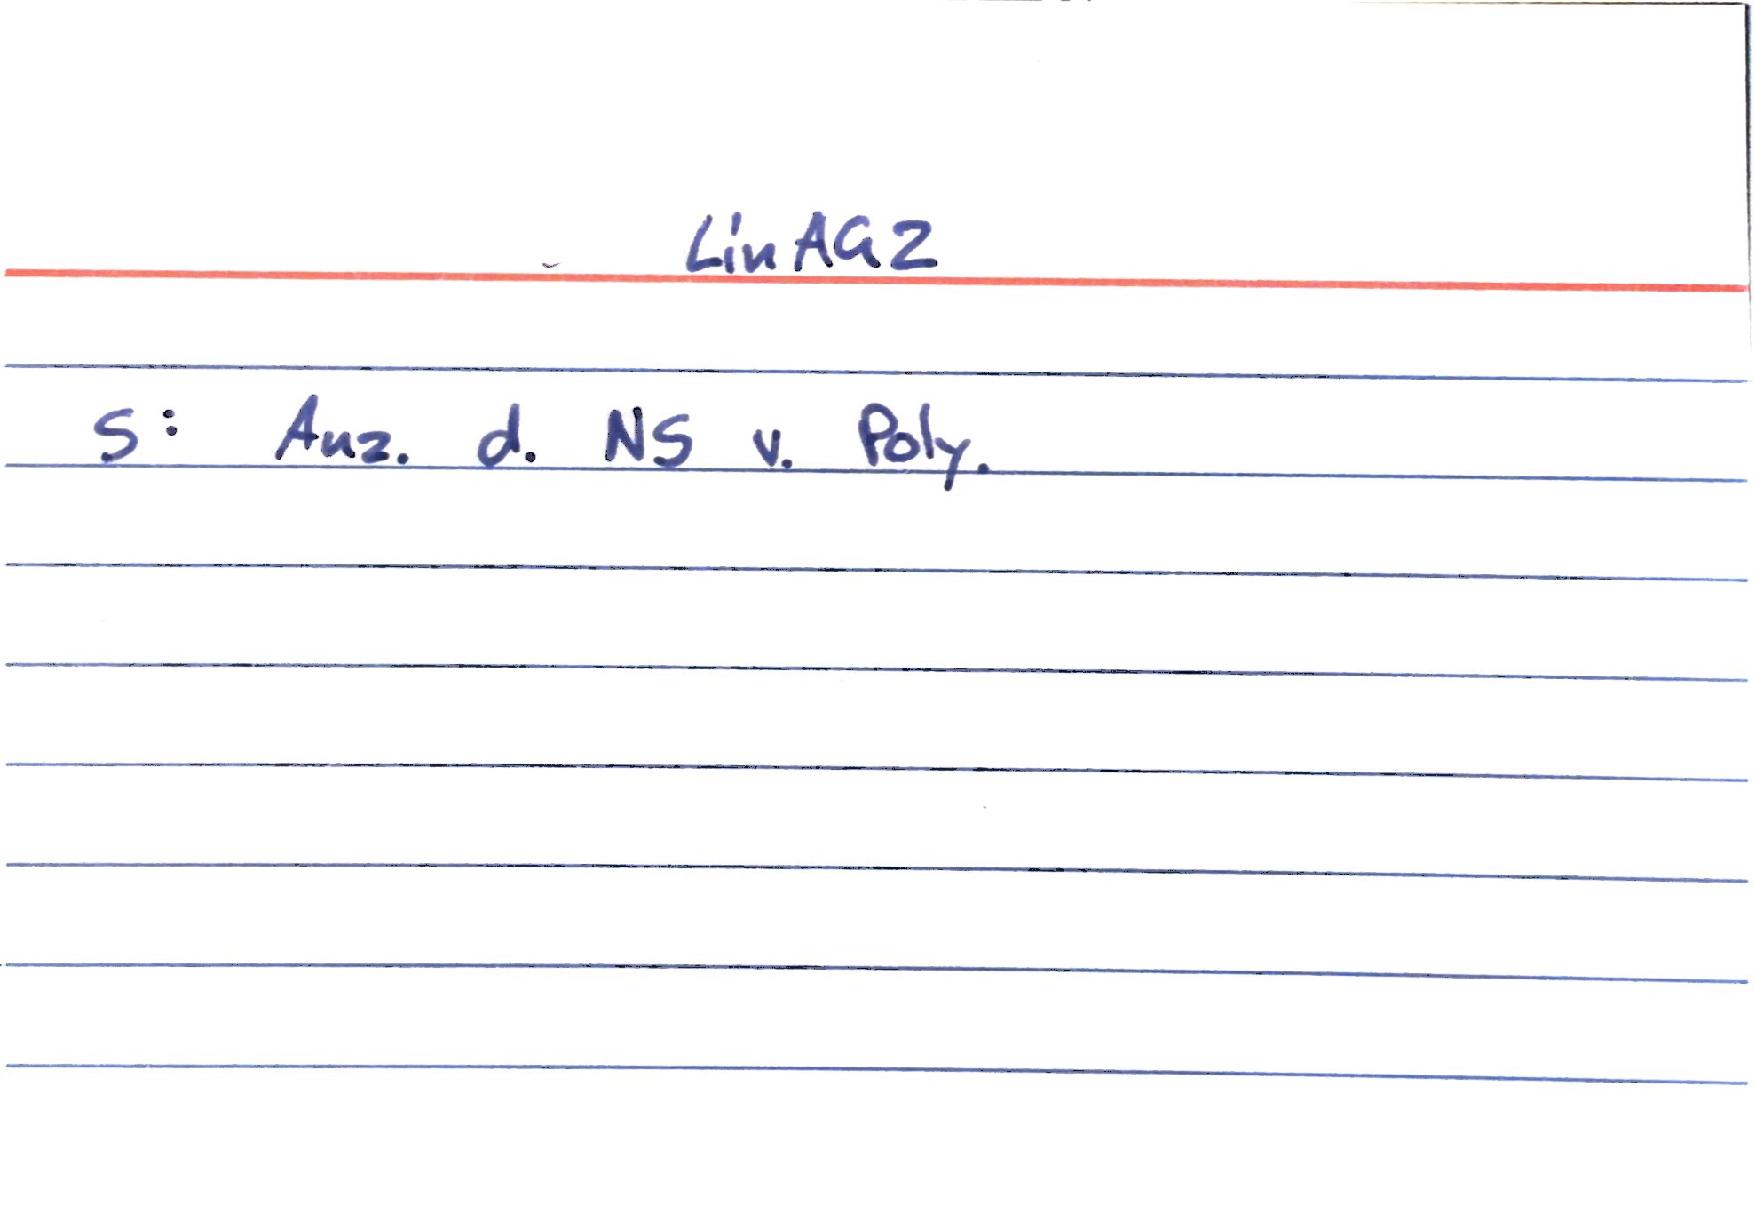 LinAG2
S: Anz. d. NS v. Poly.